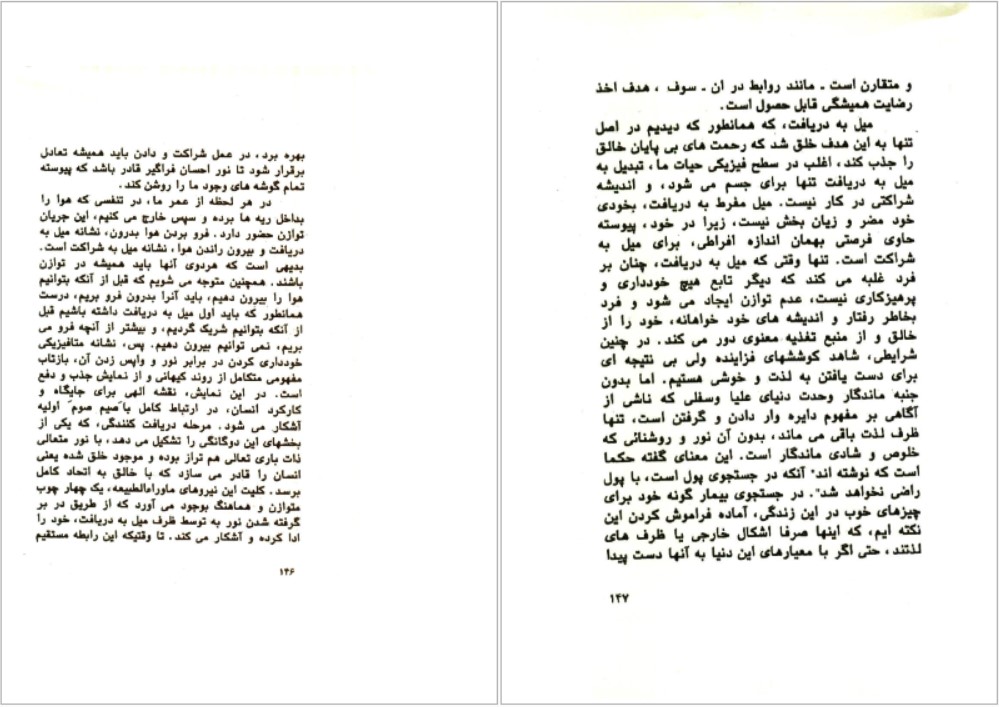 بهره برد، در عمل شراکت و دادن باید همیشه تعادل
برقرار شود تا نور احسان فراگیر قادر باشد که پیوسته
تمام گوشه های وجود ما را روشن کند.
در هر لحظه از عمر ما، در تنفسی که هوا را
بداخل ریه ها برده و سپس خارج می کنیم، این جریان
توازن حضور دارد. فرو بردن هوا بدرون، نشانه میل به
دریافت و بیرون راندن هوا، نشانه میل به شراکت است.
بدیهی است که هردوی آنها باید همیشه در توازن
باشند. همچنین متوجه می شویم که قبل از آنکه بتوانیم
هوا را بیرون دهیم، باید آنرا بدرون فرو بریم، درست
همانطور که باید اول میل به دریافت داشته باشیم قبل
از آنکه بتوانیم شریک گردیم، و بیشتر از آنچه فرو می
بریم، نمی توانیم بیرون دهیم. پس، نشانه متافیزیکی
خودداری کردن در برابر نور و واپس زدن آن، بازتاب
مفهومی متکامل از روند کیهانی و از نمایش جذب و دفع
است. در این نمایش، نقشه الهی برای جایگاه و
کارکرد انسان، در ارتباط کامل با ًصیم صومً اولیه
آشکار می شود. مرحله دریافت کنندگی، که یکی از
بخشهای این دوگانگی را تشکیل می دهد، با نور متعالی
ذات باری تعالی هم تراز بوده و موجود خلق شده یعنی
انسان را قادر می سازد که با خالق به اتحاد کامل
برسد. کلیت این نیروهای ماوراءالطبیعه، یک چهار چوب
متوازن و هماهنگ بوجود می آورد که از طریق در بر
گرفته شدن نور به توسط ظرف میل به دریافت، خود را
ادا کرده و آشکار می کند. تا وقتیکه این رابطه مستقیم
۱۴۶
و متقارن است ـ مانند روابط در ان ـ سوف، هدف اخذ
رضایت همیشگی قابل حصول است.
میل به دریافت، که همانطور که دیدیم در اصل
تنها به این هدف خلق شد که رحمت های بی پایان خالق
را جذب کند، اغلب در سطح فیزیکی حیات ما، تبدیل به
میل به دریافت تنها برای جسم می شود، و اندیشه
شراکتی در کار نیست. میل مفرط به دریافت، بخودی
خود مضر و زیان بخش نیست، زیرا در خود، پیوسته
حاوی فرصتی بهمان اندازه افراطی، برای میل به
شراکت است. تنها وقتی که میل به دریافت، چنان بر
فرد غلبه می کند که دیگر تابع هیچ خودداری و
پرهیزکاری نیست، عدم توازن ایجاد می شود و فرد
بخاطر رفتار و اندیشه های خود خواهانه، خود را از
خالق و از منبع تغذیه معنوی دور می کند. در چنین
شرایطی، شاهد کوششهای فزاینده ولی بی نتیجه ای
برای دست یافتن به لذت و خوشی هستیم. اما بدون
جنبه ماندگار وحدت دنیای علیا وسفلی که ناشی از
آگاهی بر مفهوم دایره وار دادن و گرفتن است، تنها
ظرف لذت باقی می ماند، بدون آن نور و روشنائی که
خلوص و شادی ماندگار است. این معنای گفته حکما
است که نوشته اند" آنکه در جستجوی پول است، با پول
راضی نخواهد شد". در جستجوی بیمار گونه خود برای
چیزهای خوب در این زندگی، آماده فراموش کردن این
نکته ایم، که اینها صرفا اشکال خارجی یا ظرف های
لذتند، حتی اگر با معیارهای این دنیا به آنها دست پیدا
۱۴۷